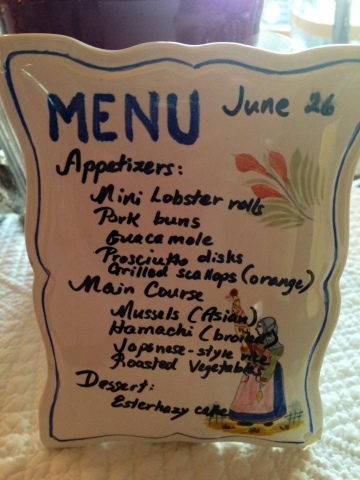 MENU June 26
Appetizers:
Mini Lobster rolls
Pork buns
Guacamole
Prosciutto disks
Grilled scallops (orange)
Main Course
Mussels (Asian)
Hamachi (broiled
Japanese-style rice
Roasted Vegetables
Dessert:
Esterhazy cake